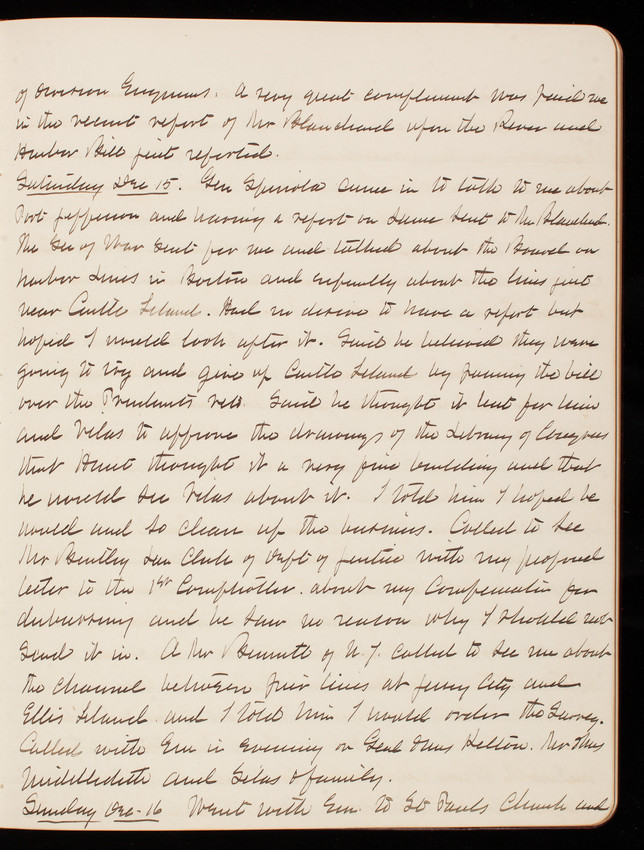 of Division Engineers. A very great compliment was paid me
in the recent report of Mr Blanchard upon the River and
Harbor Bill just reported.
Saturday Dec 15. Gen Spinola came in to talk to me about
Port Jefferson and having a report on same sent to Mr Blanchard.
The Sec of War sent for me and talked about the Board on
harbor lines in Boston and especially about the lines just
near Castle Island. Had no desire to have a report but
hoped I would look after it. Said he believed they were
going to try and give up Castle Island by passing the bill
over the Presidents veto. Said he thought it best for him
and Vilas to approve the drawings of the Library of Congress
that Hunt thought it a very fine building and that
he would see Vilas about it. I told him I hoped he
would and so clean up the business. Called to see
Mr Bentley Law Clerk of Dept of Justice with my proposed
letter to the 1st Comptroller. about my Compensation for
disbursing and he saw no reason why I should not
send it in. A Mr Bennett of N.J. called to see me about
the channel between pier lines at Jersey City and
Ellis Island and I told him I would order the Survey.
Called with Em in evening on Genl & Mrs Hilton. Mr & Mrs
Middledith and Silas & family.
Sunday Dec. 16 Went with Em. to St Pauls Church and